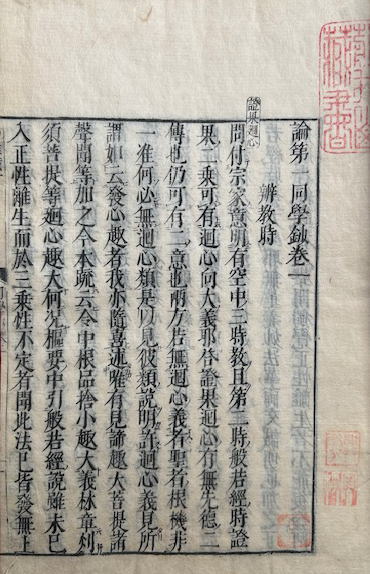 論第一同學鈔卷一
辨教時
證果迴心
問付宗家意明有空中三時教且第二時般若經時證
果二乘可有迴心向大義耶答證果迴心有無先德二
傳也仍可有二意也兩方若無迴心義者聖者根機非
一准何必無迴心類是以見彼類說明許迴心義見所
謂如云發心趣者我亦隨喜述唯有見諦趣大菩提諸
聲聞等加之今本疏云令中根品捨小趣大義林章利
須菩提等迴心趣大何況樞要中引般若經說雖未已
入正性離生而於三乘性不定有聞此法已皆發無上